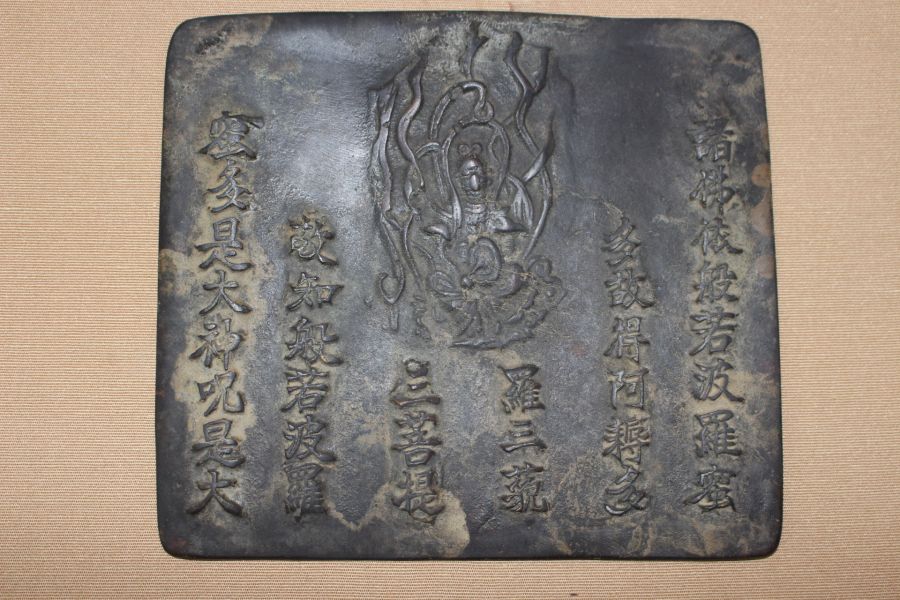 諸佛依般若波羅蜜
多故得阿耨多
羅三藐
三菩提
故知般若波羅
蜜多是大神呪是大